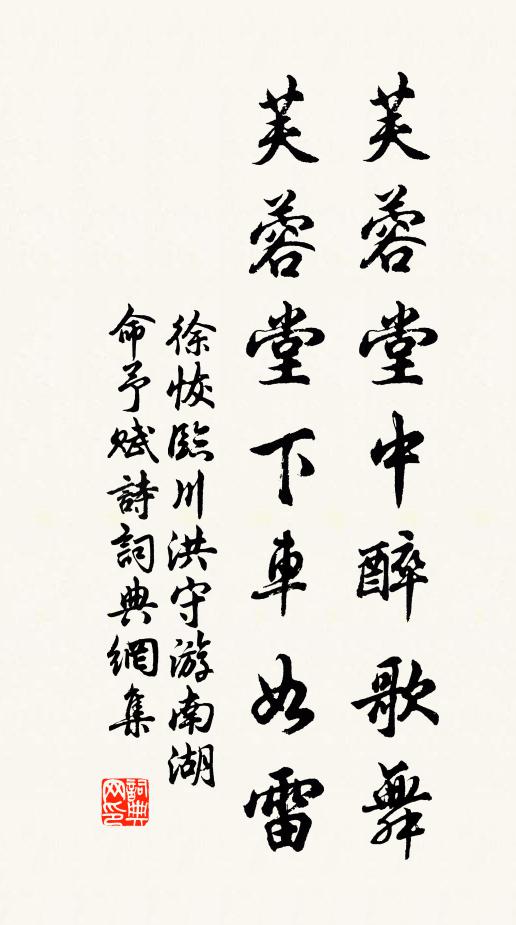 芙蓉堂中醉歌舞
芙蓉堂下車如雷
徐恢臨川洪守游南湖
命予賦詩詞典網集
詞典
网印